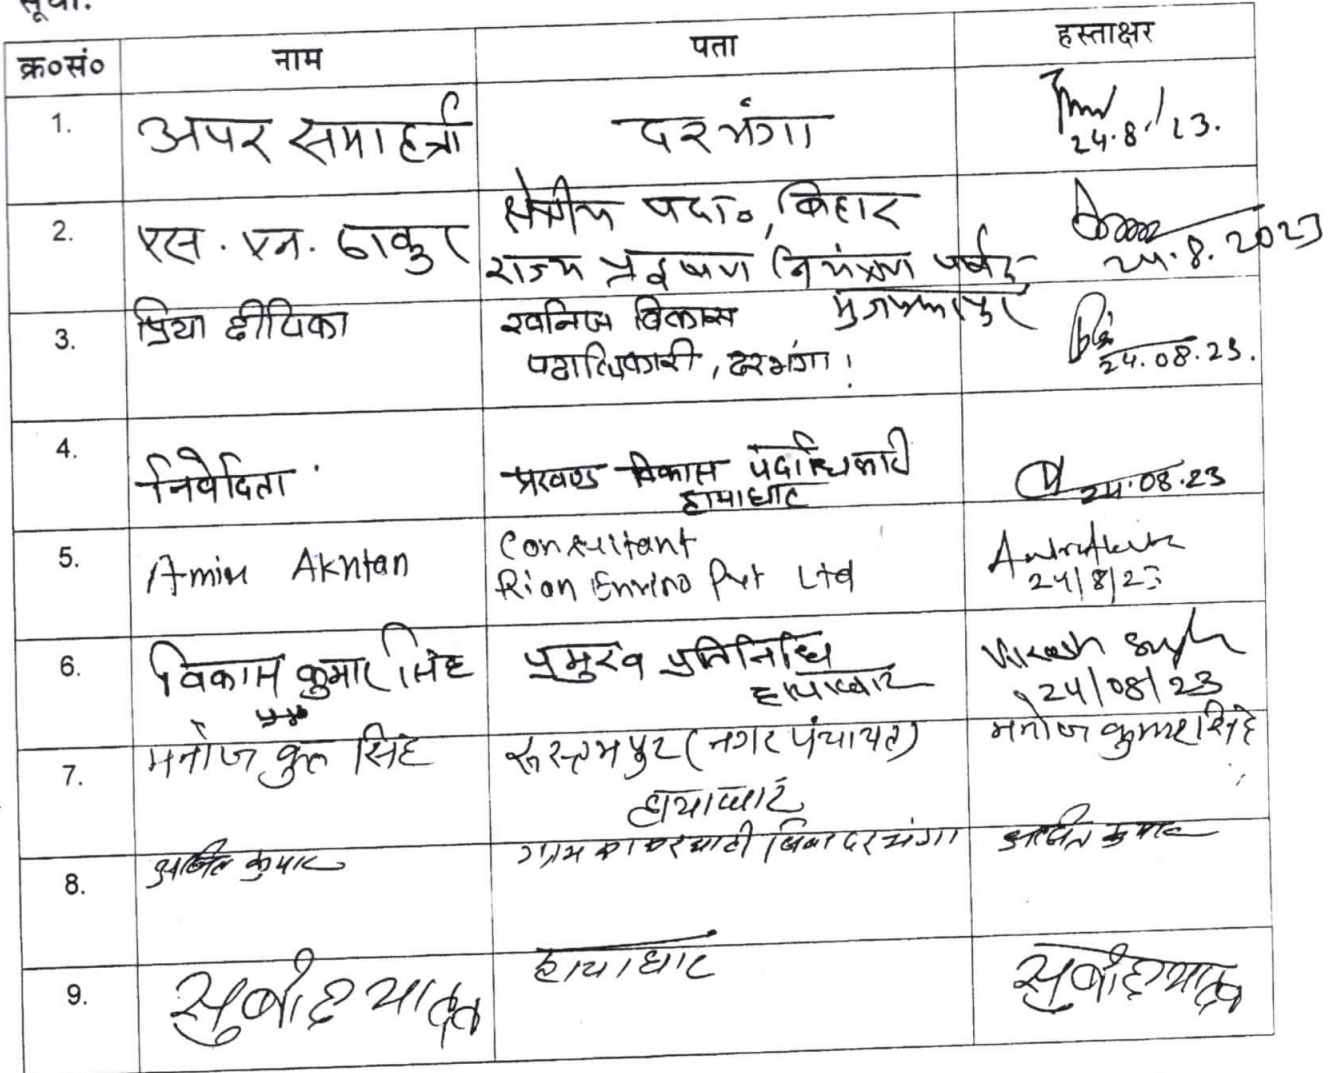 सूची:
क्र०सं० नाम पता हस्ताक्षर
1. अपर समाहर्ता दरभंगा 24.8/23.
2. एस. एन. ठाकुर क्षेत्रीय पदा०, बिहार
राज्य प्रदूषण नियंत्रण पर्षद 24.8.2023
मुजफ्फरपुर
3. प्रिया दीपिका खनिज विकास
पदाधिकारी, दरभंगा। 24.08.23.
4. निवेदिता प्रखण्ड विकास पदाधिकारी
हायाघाट 24.08.23
5. Consultant
Akhtan Rian Enviro Pvt Ltd 24/8/23
6. विकास कुमार सिंह प्रमुख प्रतिनिधि Vikash Singh
हायाघाट 24/08/23
7. मनोज कु० सिंह रूस्तमपुर (नगर पंचायत) मनोज कुमार सिंह
हायाघाट
8. अजित कुमार ग्राम दरभंगा अजित कुमार
9. सुबोध यादव हायाघाट सुबोध यादव